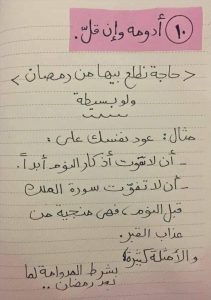 ١٠ أدومه وإن قلّ.
< حاجة نطلع بيها من رمضان >
ولو بسيطة
مثال: عود نفسك على:
- أن لا تفوت أذكار النوم أبداً.
- أن لا تفوّت سورة الملك
قبل النوم، فهي منجية من
عذاب القبر.
و الأمثلة كثيرة،
بشرط المداومة لما
بعد رمضان ..